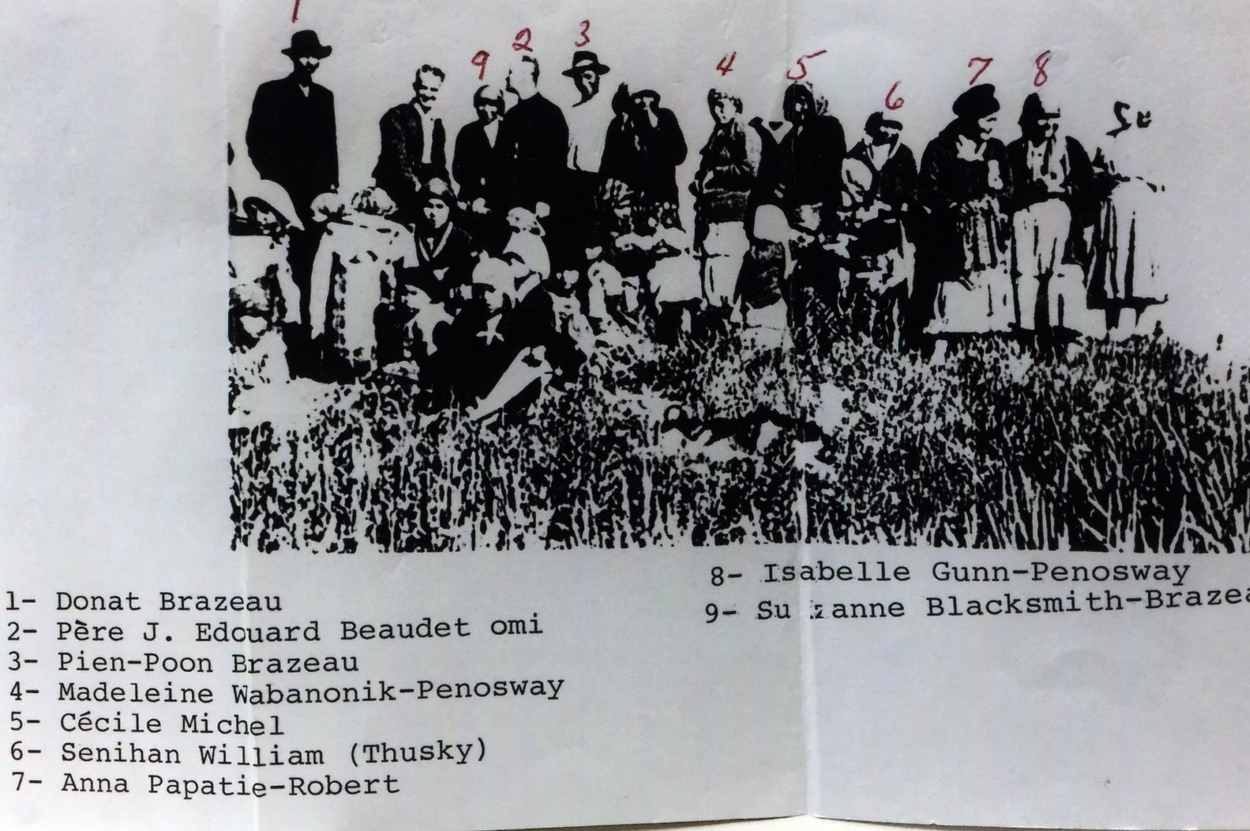 1
9 2 3 4 5 6 7 8
1- Donat Brazeau
2- Père J. Edouard Beaudet omi
3- Pien-Poon Brazeau
4- Madeleine Wabanonik-Penosway
5- Cécile Michel
6- Senihan William (Thusky)
7- Anna Papatie-Robert
8- Isabelle Gunn-Penosway
9- Suzanne Blacksmith-Brazea